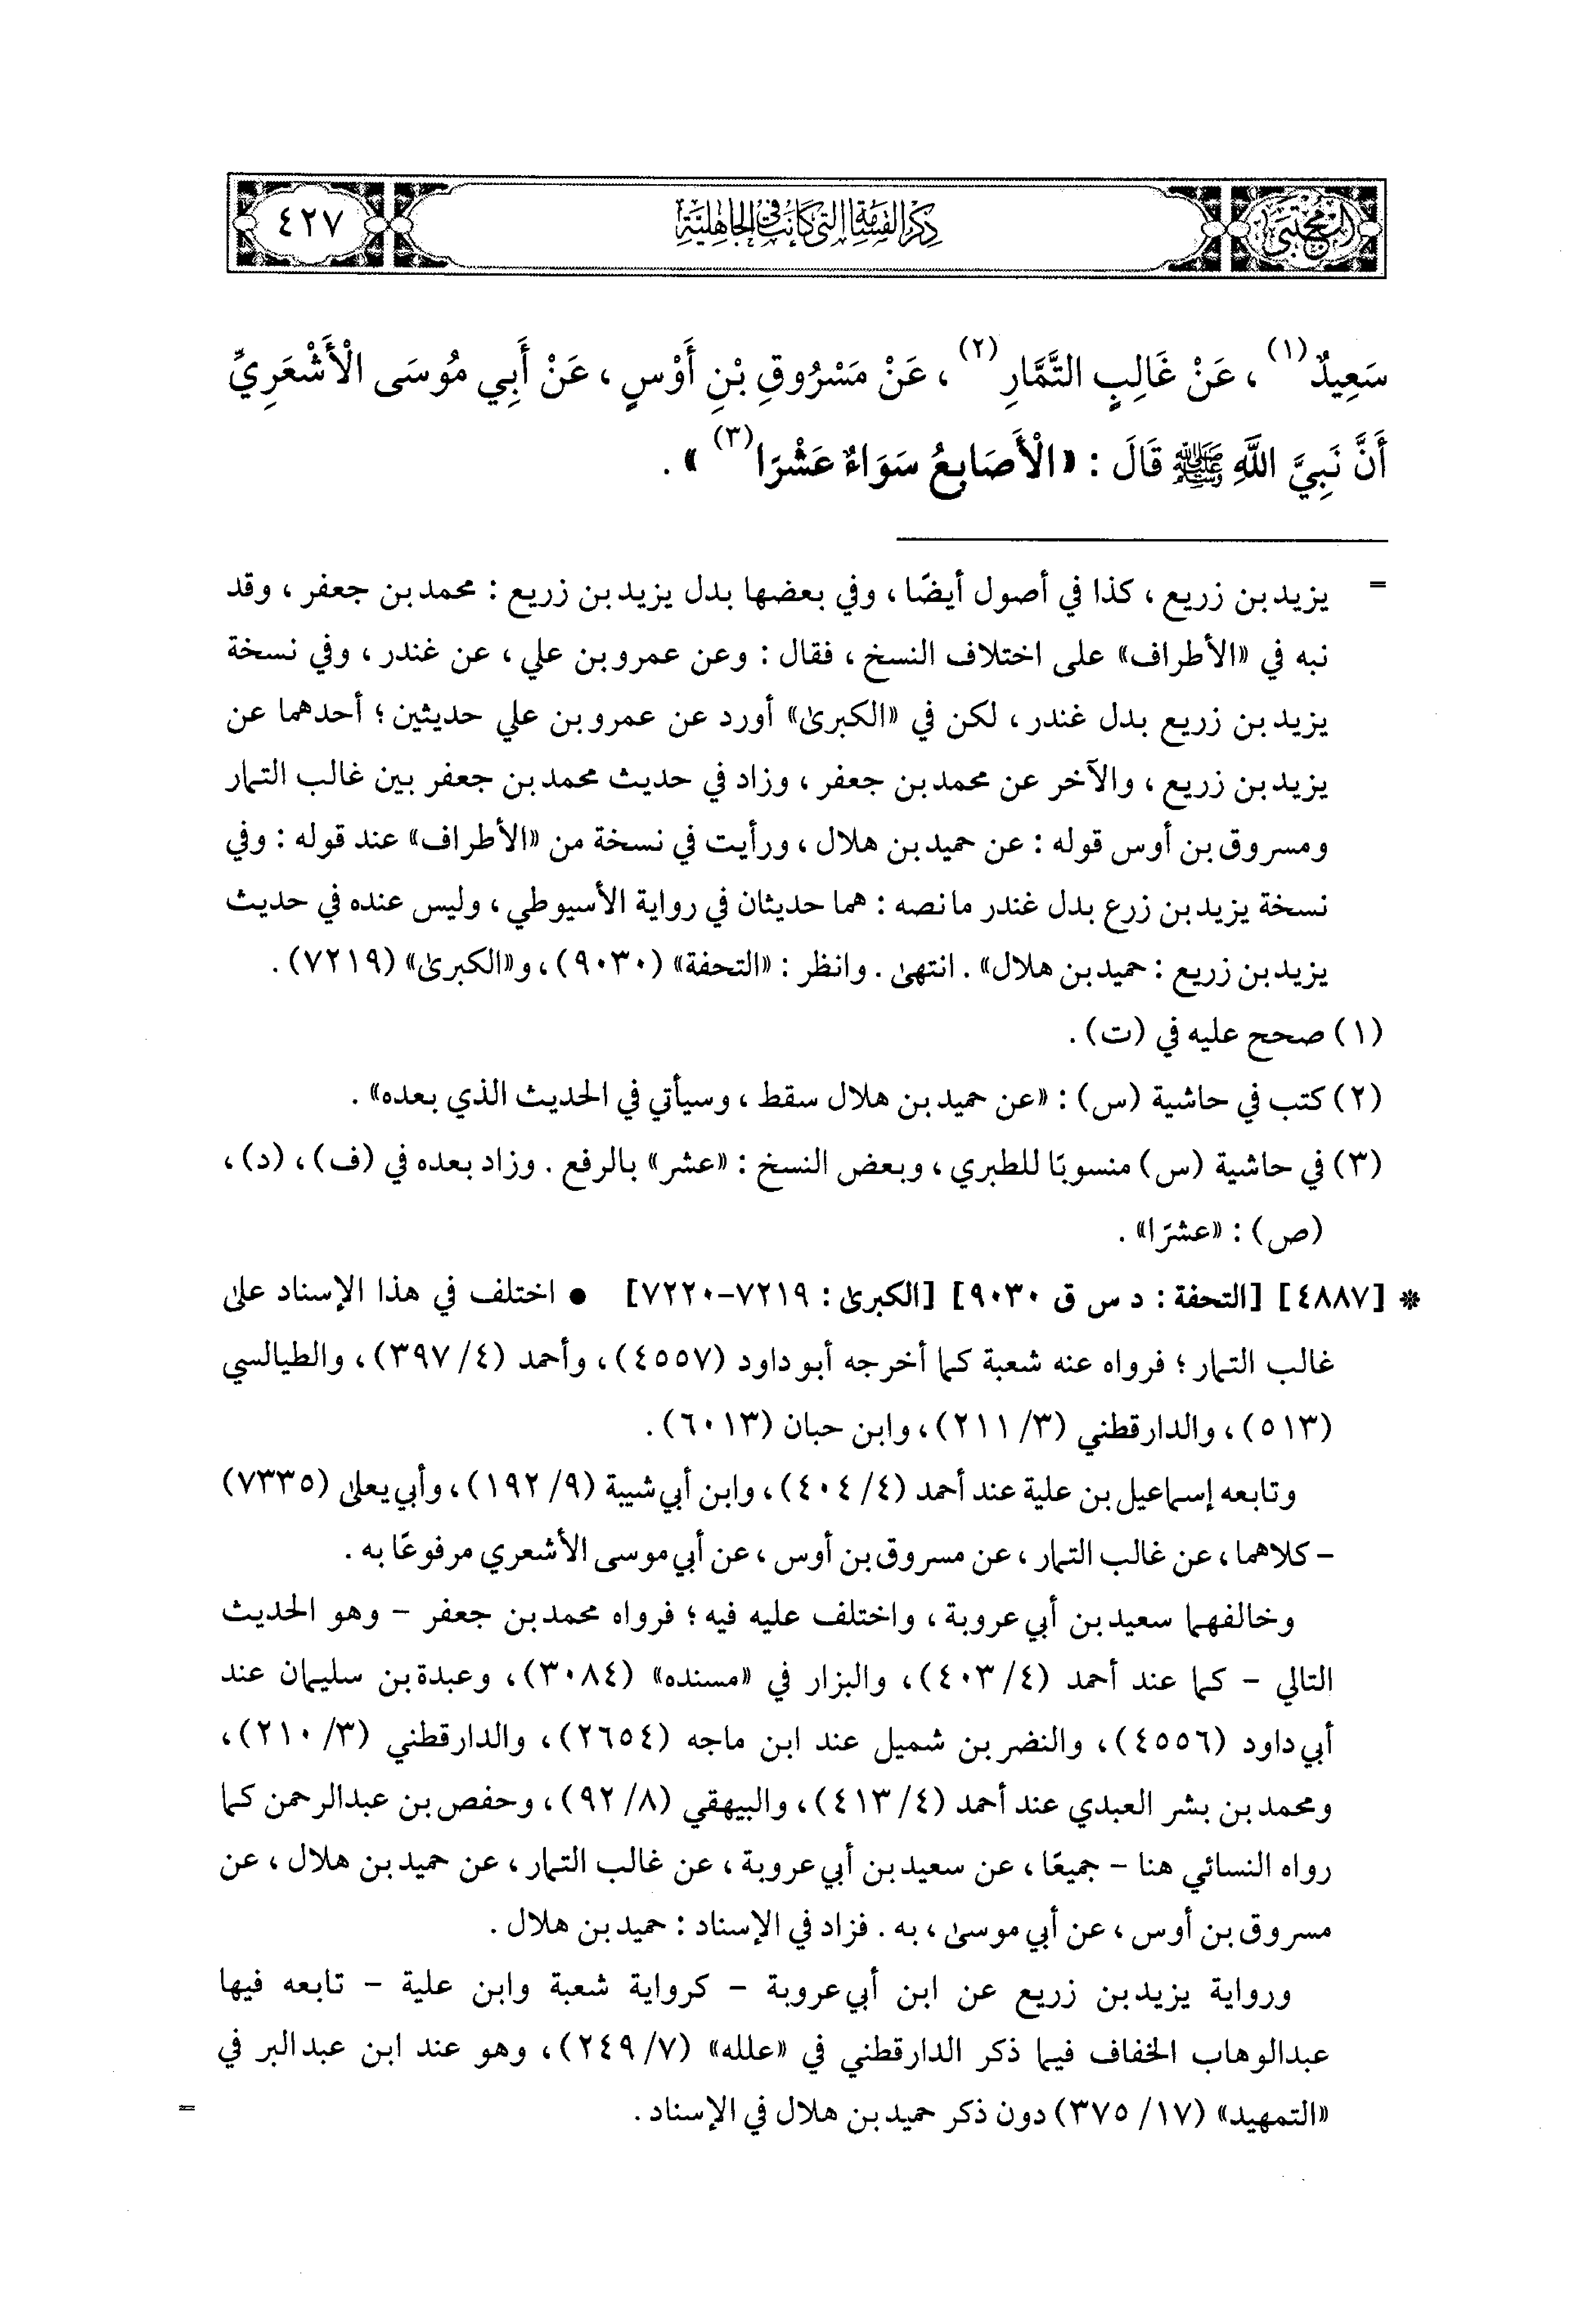 المجتبى
ذكر القسامة التي كانت في الجاهلية
٤٢٧
سَعِيدٌ(١)، عَنْ غَالِبٍ التَّمَّارِ(٢)، عَنْ مَسْرُوقِ بْنِ أَوْسٍ، عَنْ أَبِي مُوسَى الْأَشْعَرِيِّ
أَنَّ نَبِيَّ اللَّهِ ﷺ قَالَ: «الْأَصَابِعُ سَوَاءٌ عَشْرَا(٣)».
= يزيد بن زريع، كذا في أصول أيضًا، وفي بعضها بدل يزيد بن زريع: محمد بن جعفر، وقد
نبه في «الأطراف» على اختلاف النسخ، فقال: وعن عمرو بن علي، عن غندر، وفي نسخة
يزيد بن زريع بدل غندر، لكن في «الكبرىٰ» أورد عن عمرو بن علي حديثين؛ أحدهما عن
يزيد بن زريع، والآخر عن محمد بن جعفر، وزاد في حديث محمد بن جعفر بين غالب التمار
ومسروق بن أوس قوله: عن حميد بن هلال، ورأيت في نسخة من «الأطراف» عند قوله: وفي
نسخة يزيد بن زرع بدل غندر ما نصه: هما حديثان في رواية الأسيوطي، وليس عنده في حديث
يزيد بن زريع: حميد بن هلال». انتهىٰ. وانظر: «التحفة» (٩٠٣٠)، و«الكبرىٰ» (٧٢١٩).
(١) صحح عليه في (ت).
(٢) كتب في حاشية (س): «عن حميد بن هلال سقط، وسيأتي في الحديث الذي بعده».
(٣) في حاشية (س) منسوبًا للطبري، وبعض النسخ: «عشر» بالرفع. وزاد بعده في (ف)، (د)،
(ص): «عشرًا».
* [٤٨٨٧] [التحفة: د س ق ٩٠٣٠] [الكبرىٰ: ٧٢١٩-٧٢٢٠] • اختلف في هذا الإسناد علىٰ
غالب التمار؛ فرواه عنه شعبة كما أخرجه أبو داود (٤٥٥٧)، وأحمد (٤/ ٣٩٧)، والطيالسي
(٥١٣)، والدارقطني (٣/ ٢١١)، وابن حبان (٦٠١٣).
وتابعه إسماعيل بن علية عند أحمد (٤/ ٤٠٤)، وابن أبي شيبة (٩/ ١٩٢)، وأبي يعلىٰ (٧٣٣٥)
- كلاهما، عن غالب التمار، عن مسروق بن أوس، عن أبي موسى الأشعري مرفوعًا به.
وخالفهما سعيد بن أبي عروبة، واختلف عليه فيه؛ فرواه محمد بن جعفر - وهو الحديث
التالي - كما عند أحمد (٤/ ٤٠٣)، والبزار في «مسنده» (٣٠٨٤)، وعبدة بن سليمان عند
أبي داود (٤٥٥٦)، والنضر بن شميل عند ابن ماجه (٢٦٥٤)، والدارقطني (٣/ ٢١٠)،
ومحمد بن بشر العبدي عند أحمد (٤/ ٤١٣)، والبيهقي (٨/ ٩٢)، وحفص بن عبدالرحمن كما
رواه النسائي هنا - جميعًا، عن سعيد بن أبي عروبة، عن غالب التمار، عن حميد بن هلال، عن
مسروق بن أوس، عن أبي موسىٰ، به. فزاد في الإسناد: حميد بن هلال.
ورواية يزيد بن زريع عن ابن أبي عروبة - كرواية شعبة وابن علية - تابعه فيها
عبدالوهاب الخفاف فيما ذكر الدارقطني في «علله» (٧/ ٢٤٩)، وهو عند ابن عبدالبر في
«التمهيد» (١٧/ ٣٧٥) دون ذكر حميد بن هلال في الإسناد. =